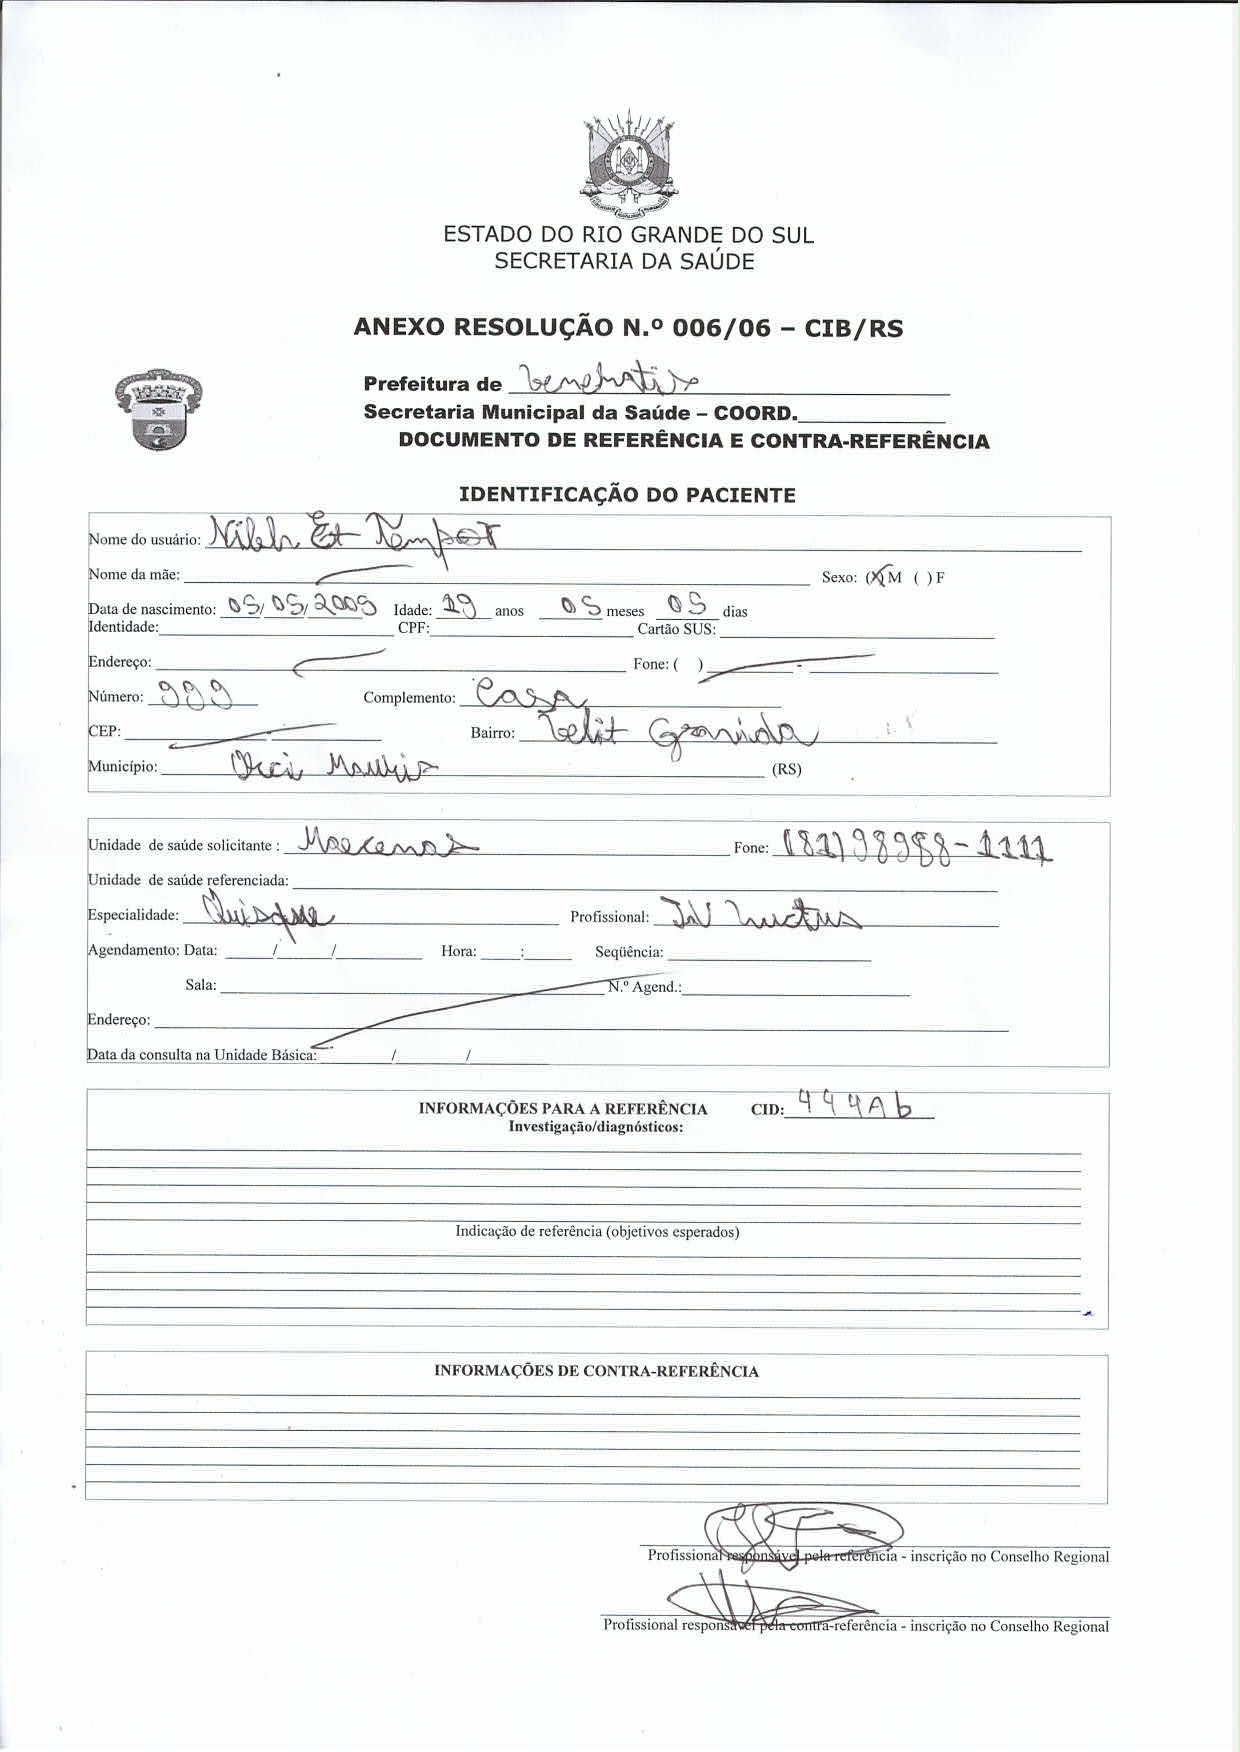 ESTADO DO RIO GRANDE DO SUL
SECRETARIA DA SAÚDE
ANEXO RESOLUÇÃO N.º 006/06 – CIB/RS
Prefeitura de
Secretaria Municipal da Saúde – COORD.
DOCUMENTO DE REFERÊNCIA E CONTRA-REFERÊNCIA
IDENTIFICAÇÃO DO PACIENTE
Nome do usuário: Nibh Et Tempor
Nome da mãe: Sexo: (X) M ( ) F
Data de nascimento: 05/05/2005 Idade: 19 anos 05 meses 05 dias
Identidade: CPF: Cartão SUS:
Endereço: Fone: ( ) -
Número: 999 Complemento: Casa
CEP: - Bairro: Velit Gravida
Município: Orci Mauris (RS)
Unidade de saúde solicitante : Maecenas Fone: (81) 98988-1111
Unidade de saúde referenciada:
Especialidade: Quisque Profissional: Luctus
Agendamento: Data: / / Hora: : Seqüência:
Sala: N.º Agend.:
Endereço:
Data da consulta na Unidade Básica: / /
INFORMAÇÕES PARA A REFERÊNCIA CID: 444Ab
Investigação/diagnósticos:
Indicação de referência (objetivos esperados)
INFORMAÇÕES DE CONTRA-REFERÊNCIA
Profissional responsável pela referência - inscrição no Conselho Regional
Profissional responsável pela contra-referência - inscrição no Conselho Regional